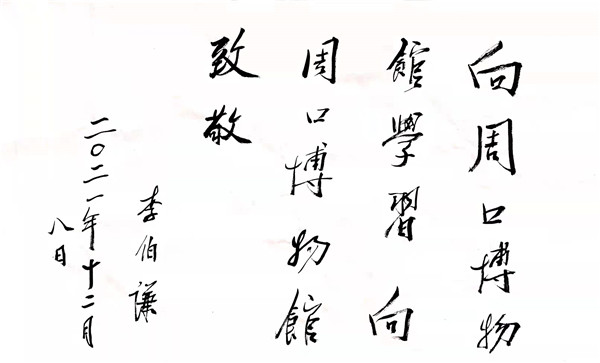 向周口博物
館學習 向
周口博物館
致敬
李伯謙
二〇二一年十二月
八日